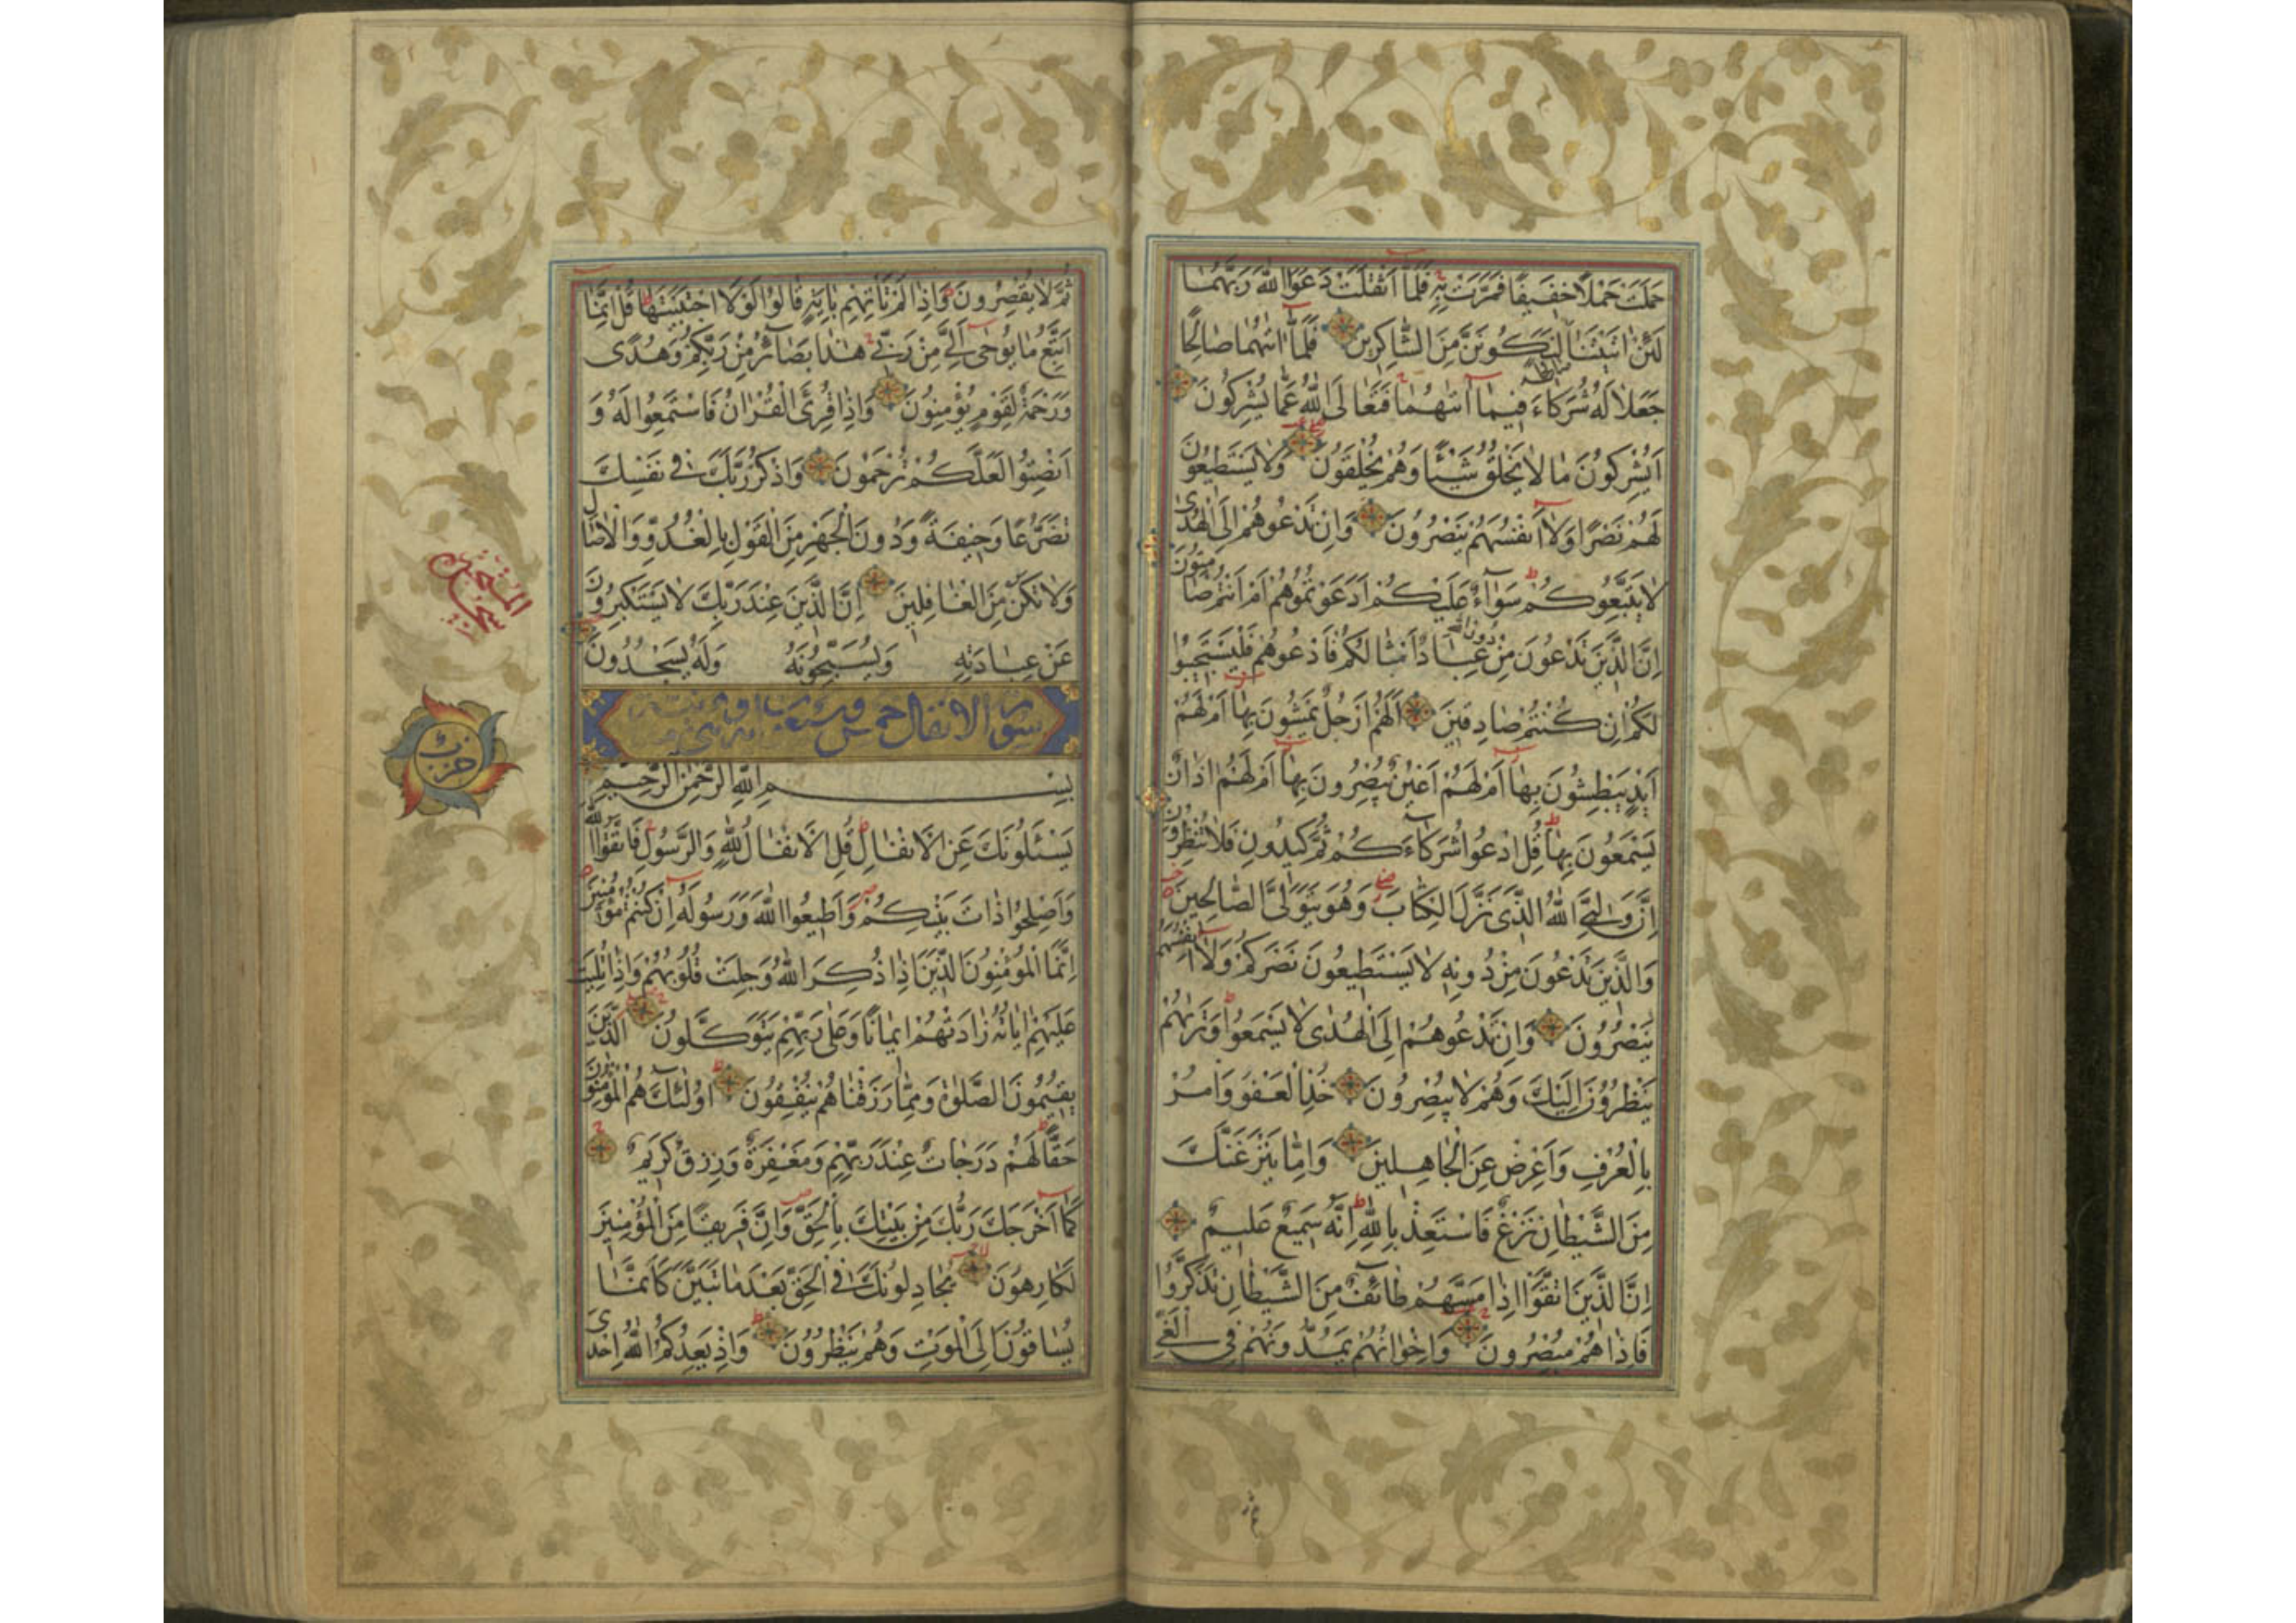 حَمَلَتْ حَمْلًا خَفِيفًا فَمَرَّتْ بِهِ فَلَمَّا أَثْقَلَتْ دَعَوَا اللهَ رَبَّهُمَا
لَئِنْ اٰتَيْتَنَا صَالِحًا لَنَكُونَنَّ مِنَ الشَّاكِرِينَ فَلَمَّا اٰتٰيهُمَا صَالِحًا
جَعَلَا لَهُ شُرَكَاءَ فِيمَا اٰتٰيهُمَا فَتَعَالَى اللهُ عَمَّا يُشْرِكُونَ
اَيُشْرِكُونَ مَا لَا يَخْلُقُ شَيْئًا وَهُمْ يُخْلَقُونَ وَلَا يَسْتَطِيعُونَ
لَهُمْ نَصْرًا وَلَا اَنْفُسَهُمْ يَنْصُرُونَ وَاِنْ تَدْعُوهُمْ اِلَى الْهُدٰى
لَا يَتَّبِعُوكُمْ سَوَاءٌ عَلَيْكُمْ اَدَعَوْتُمُوهُمْ اَمْ اَنْتُمْ صَامِتُونَ
اِنَّ الَّذِينَ تَدْعُونَ مِنْ دُونِ اللهِ عِبَادٌ اَمْثَالُكُمْ فَادْعُوهُمْ فَلْيَسْتَجِيبُوا
لَكُمْ اِنْ كُنْتُمْ صَادِقِينَ اَلَهُمْ اَرْجُلٌ يَمْشُونَ بِهَا اَمْ لَهُمْ
اَيْدٍ يَبْطِشُونَ بِهَا اَمْ لَهُمْ اَعْيُنٌ يُبْصِرُونَ بِهَا اَمْ لَهُمْ اٰذَانٌ
يَسْمَعُونَ بِهَا قُلِ ادْعُوا شُرَكَاءَكُمْ ثُمَّ كِيدُونِ فَلَا تُنْظِرُونِ
اِنَّ وَلِيِّيَ اللهُ الَّذِي نَزَّلَ الْكِتَابَ وَهُوَ يَتَوَلَّى الصَّالِحِينَ
وَالَّذِينَ تَدْعُونَ مِنْ دُونِهِ لَا يَسْتَطِيعُونَ نَصْرَكُمْ وَلَا اَنْفُسَهُمْ
يَنْصُرُونَ وَاِنْ تَدْعُوهُمْ اِلَى الْهُدٰى لَا يَسْمَعُوا وَتَرٰيهُمْ
يَنْظُرُونَ اِلَيْكَ وَهُمْ لَا يُبْصِرُونَ خُذِ الْعَفْوَ وَأْمُرْ
بِالْعُرْفِ وَاَعْرِضْ عَنِ الْجَاهِلِينَ وَاِمَّا يَنْزَغَنَّكَ
مِنَ الشَّيْطَانِ نَزْغٌ فَاسْتَعِذْ بِاللهِ اِنَّهُ سَمِيعٌ عَلِيمٌ
اِنَّ الَّذِينَ اتَّقَوْا اِذَا مَسَّهُمْ طَائِفٌ مِنَ الشَّيْطَانِ تَذَكَّرُوا
فَاِذَا هُمْ مُبْصِرُونَ وَاِخْوَانُهُمْ يَمُدُّونَهُمْ فِي الْغَيِّ
ثُمَّ لَا يُقْصِرُونَ وَاِذَا لَمْ تَأْتِهِمْ بِاٰيَةٍ قَالُوا لَوْلَا اجْتَبَيْتَهَا قُلْ اِنَّمَا
اَتَّبِعُ مَا يُوحٰى اِلَيَّ مِنْ رَبِّي هٰذَا بَصَائِرُ مِنْ رَبِّكُمْ وَهُدًى
وَرَحْمَةٌ لِقَوْمٍ يُؤْمِنُونَ وَاِذَا قُرِئَ الْقُرْاٰنُ فَاسْتَمِعُوا لَهُ وَ
اَنْصِتُوا لَعَلَّكُمْ تُرْحَمُونَ وَاذْكُرْ رَبَّكَ فِي نَفْسِكَ
تَضَرُّعًا وَخِيفَةً وَدُونَ الْجَهْرِ مِنَ الْقَوْلِ بِالْغُدُوِّ وَالْاٰصَالِ
وَلَا تَكُنْ مِنَ الْغَافِلِينَ اِنَّ الَّذِينَ عِنْدَ رَبِّكَ لَا يَسْتَكْبِرُونَ
عَنْ عِبَادَتِهِ وَيُسَبِّحُونَهُ وَلَهُ يَسْجُدُونَ
سورة الانفال خمس وسبعون
حزب
بِسْمِ اللهِ الرَّحْمٰنِ الرَّحِيمِ
يَسْـَٔلُونَكَ عَنِ الْاَنْفَالِ قُلِ الْاَنْفَالُ لِلّٰهِ وَالرَّسُولِ فَاتَّقُوا اللهَ
وَاَصْلِحُوا ذَاتَ بَيْنِكُمْ وَاَطِيعُوا اللهَ وَرَسُولَهُ اِنْ كُنْتُمْ مُؤْمِنِينَ
اِنَّمَا الْمُؤْمِنُونَ الَّذِينَ اِذَا ذُكِرَ اللهُ وَجِلَتْ قُلُوبُهُمْ وَاِذَا تُلِيَتْ
عَلَيْهِمْ اٰيَاتُهُ زَادَتْهُمْ اِيمَانًا وَعَلٰى رَبِّهِمْ يَتَوَكَّلُونَ الَّذِينَ
يُقِيمُونَ الصَّلٰوةَ وَمِمَّا رَزَقْنَاهُمْ يُنْفِقُونَ اُولٰئِكَ هُمُ الْمُؤْمِنُونَ
حَقًّا لَهُمْ دَرَجَاتٌ عِنْدَ رَبِّهِمْ وَمَغْفِرَةٌ وَرِزْقٌ كَرِيمٌ
كَمَا اَخْرَجَكَ رَبُّكَ مِنْ بَيْتِكَ بِالْحَقِّ وَاِنَّ فَرِيقًا مِنَ الْمُؤْمِنِينَ
لَكَارِهُونَ يُجَادِلُونَكَ فِي الْحَقِّ بَعْدَ مَا تَبَيَّنَ كَاَنَّمَا
يُسَاقُونَ اِلَى الْمَوْتِ وَهُمْ يَنْظُرُونَ وَاِذْ يَعِدُكُمُ اللهُ اِحْدَى